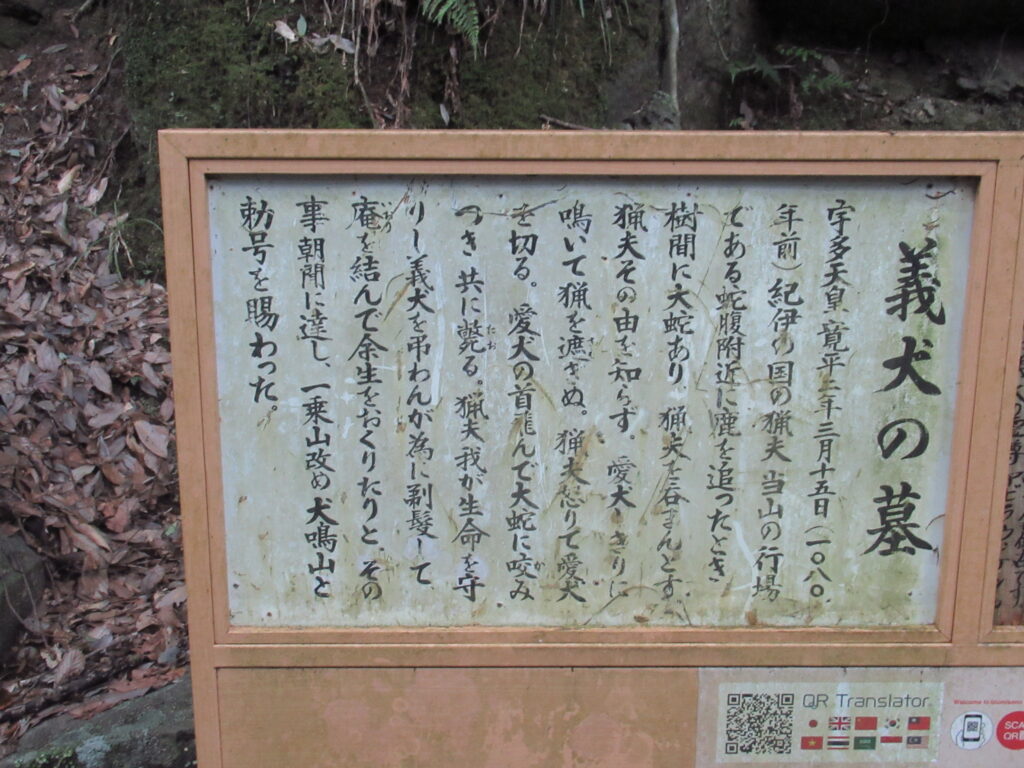 義犬の墓
宇多天皇寛平二年三月十五日(一〇八〇
年前)紀伊の国の猟夫当山の行場
である蛇腹附近に鹿を追ったとき
樹間に大蛇あり、猟夫を呑まんとす。
猟夫その由を知らず。愛犬しきりに
鳴いて猟を遮ぎぬ。猟夫怒りて愛犬
を切る。愛犬の首飛んで大蛇に咬み
つき共に斃る。猟夫我が生命を守
りし義犬を弔わんが為に剃髪して
庵を結んで余生をおくりたりと その
事朝聞に達し、一乗山改め犬鳴山と
勅号を賜わった。
QR Translator
Welcome to Izumisano
SCA
QR